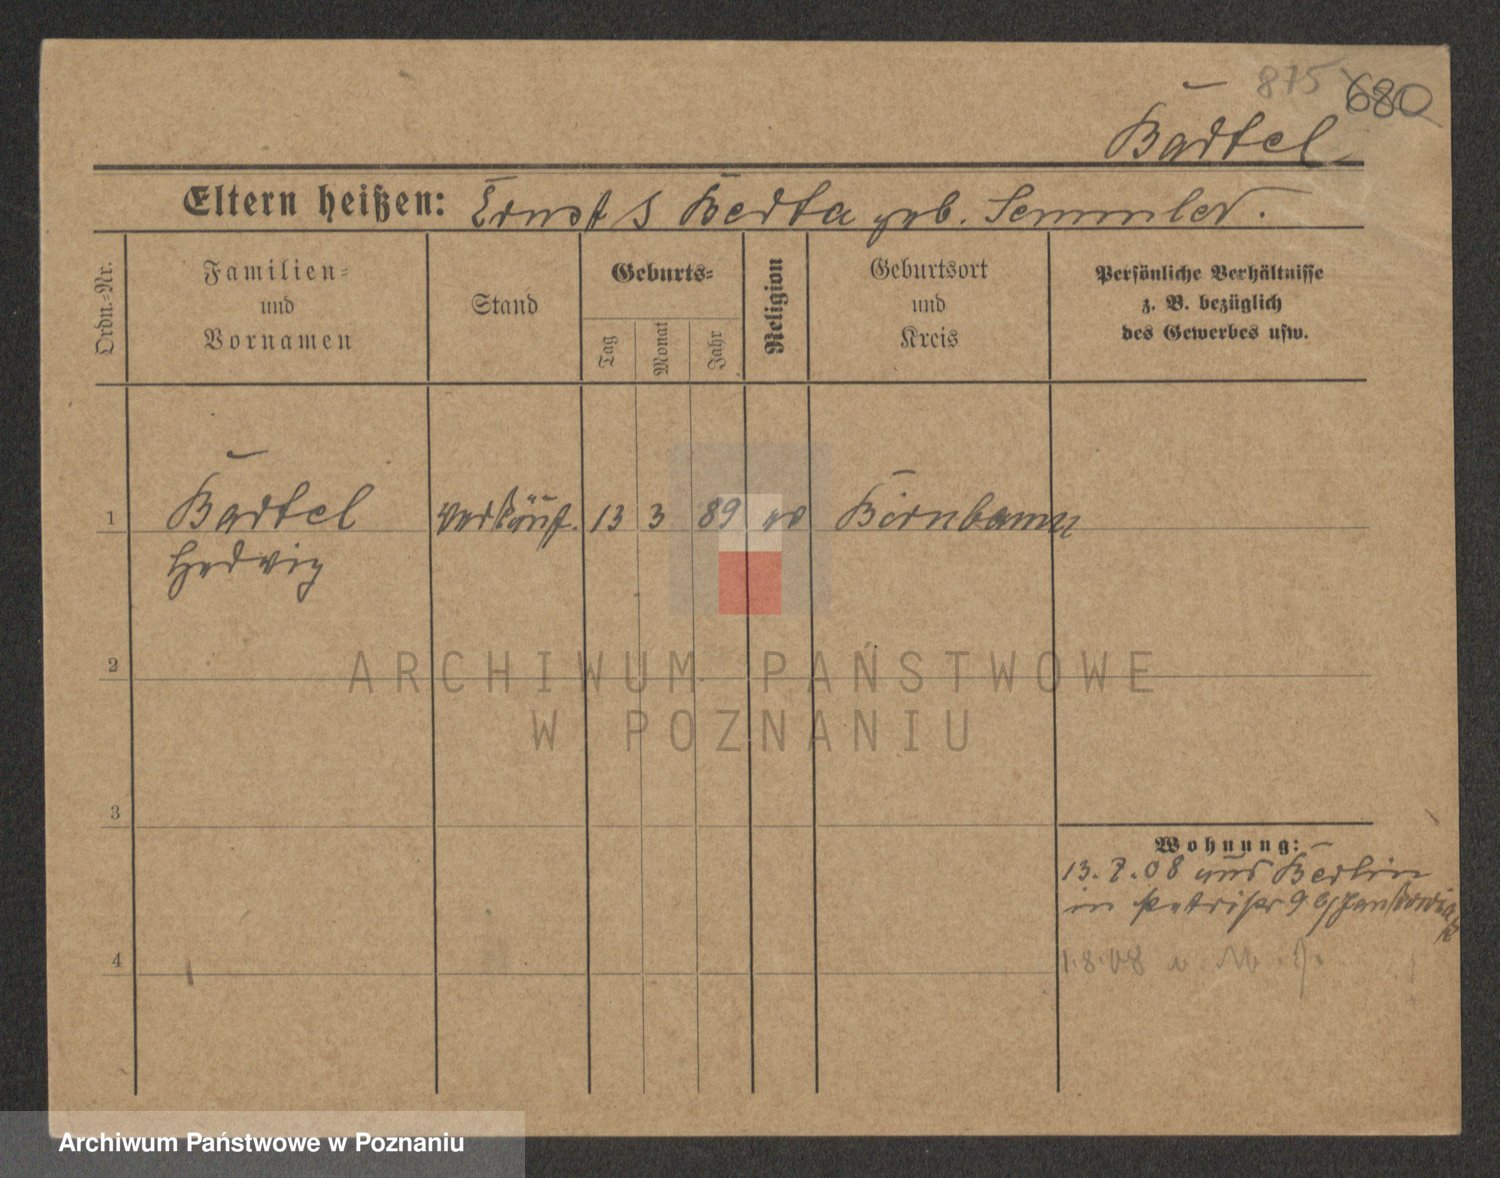 875 680
Bartel
Eltern heißen: Ernst & Berta geb. Semmler.
Ordn.=Nr.
Familien=
und
Vornamen
Stand
Geburts=
Tag
Monat
Jahr
Religion
Geburtsort
und
Kreis
Persönliche Verhältnisse
z. B. bezüglich
des Gewerbes usw.
1 Bartel Verkäuf. 13 3 89 ev Birnbaum
Hedwig
2
ARCHIWUM PAŃSTWOWE
W POZNANIU
3
Wohnung:
13.7.08 aus Berlin
in Petristr 9 b/
4
1.8.08
Archiwum Państwowe w Poznaniu